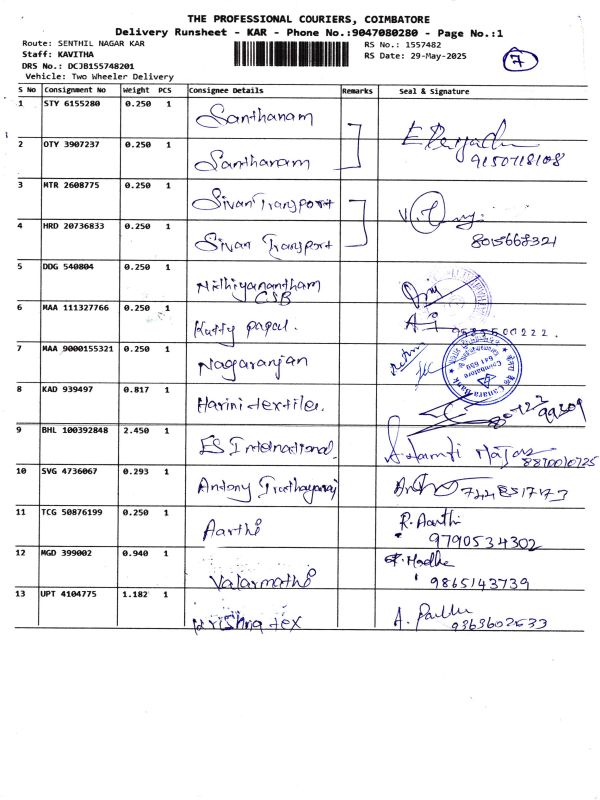 THE PROFESSIONAL COURIERS, COIMBATORE
Delivery Runsheet - KAR - Phone No.:9047080280 - Page No.:1
Route: SENTHIL NAGAR KAR RS No.: 1557482
Staff: KAVITHA RS Date: 29-May-2025 7
DRS No.: DCJB155748201
Vehicle: Two Wheeler Delivery
S No Consignment No Weight PCS Consignee Details Remarks Seal & Signature
1 STY 6155280 0.250 1 Santhanam
2 OTY 3907237 0.250 1 Santhanam 9150718108
3 MTR 2608775 0.250 1 Sivan Transport
4 HRD 20736833 0.250 1 Sivan Transport 8015668321
5 DDG 540804 0.250 1 Nithiyanantham
CSB
6 MAA 111327766 0.250 1 Kutty pagal.
7 MAA 9000155321 0.250 1 Nagaranjan Canara Bank Coimbatore
8 KAD 939497 0.817 1 Harini textiles.
9 BHL 100392848 2.450 1 ES International
10 SVG 4736067 0.293 1 Antony
11 TCG 50876199 0.250 1 Aarthi R. Aarthi
9790534302
12 MGD 399002 0.940 1 Valarmathi
9865143739
13 UPT 4104775 1.182 1 Krishna tex A.
9363602533